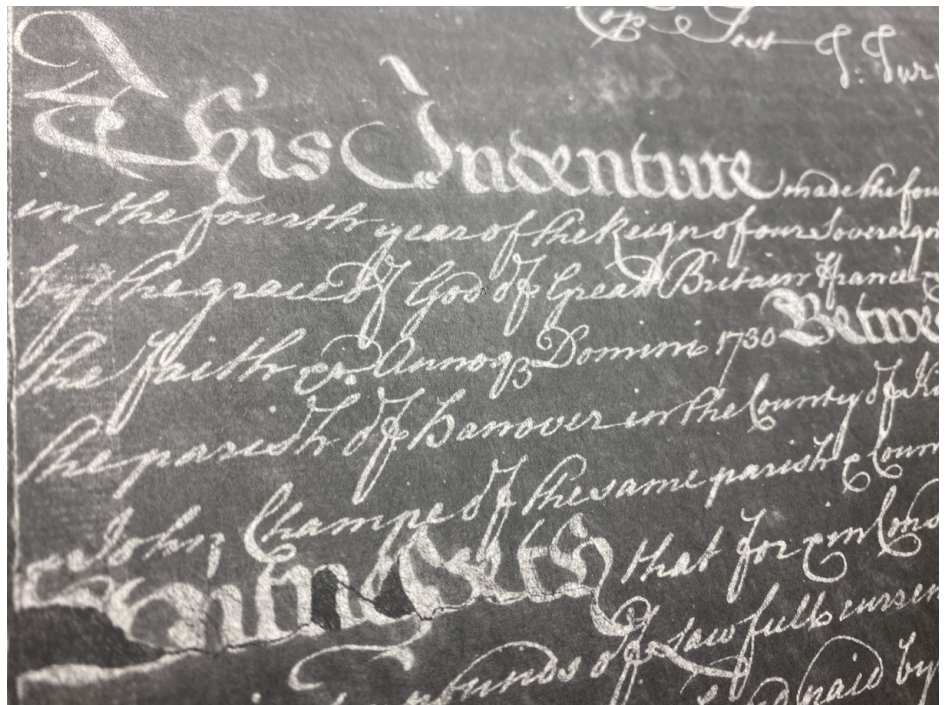 Cop Test
This Indenture made the
in the fourth year of the Reign of our Sovereign
by the grace Of God of Great Britain France
the Faith &c. Annoq Domini 1730
the parish of Hanover in the County of
John Champe of the same parish &
that for & in
pounds of lawfull
paid by